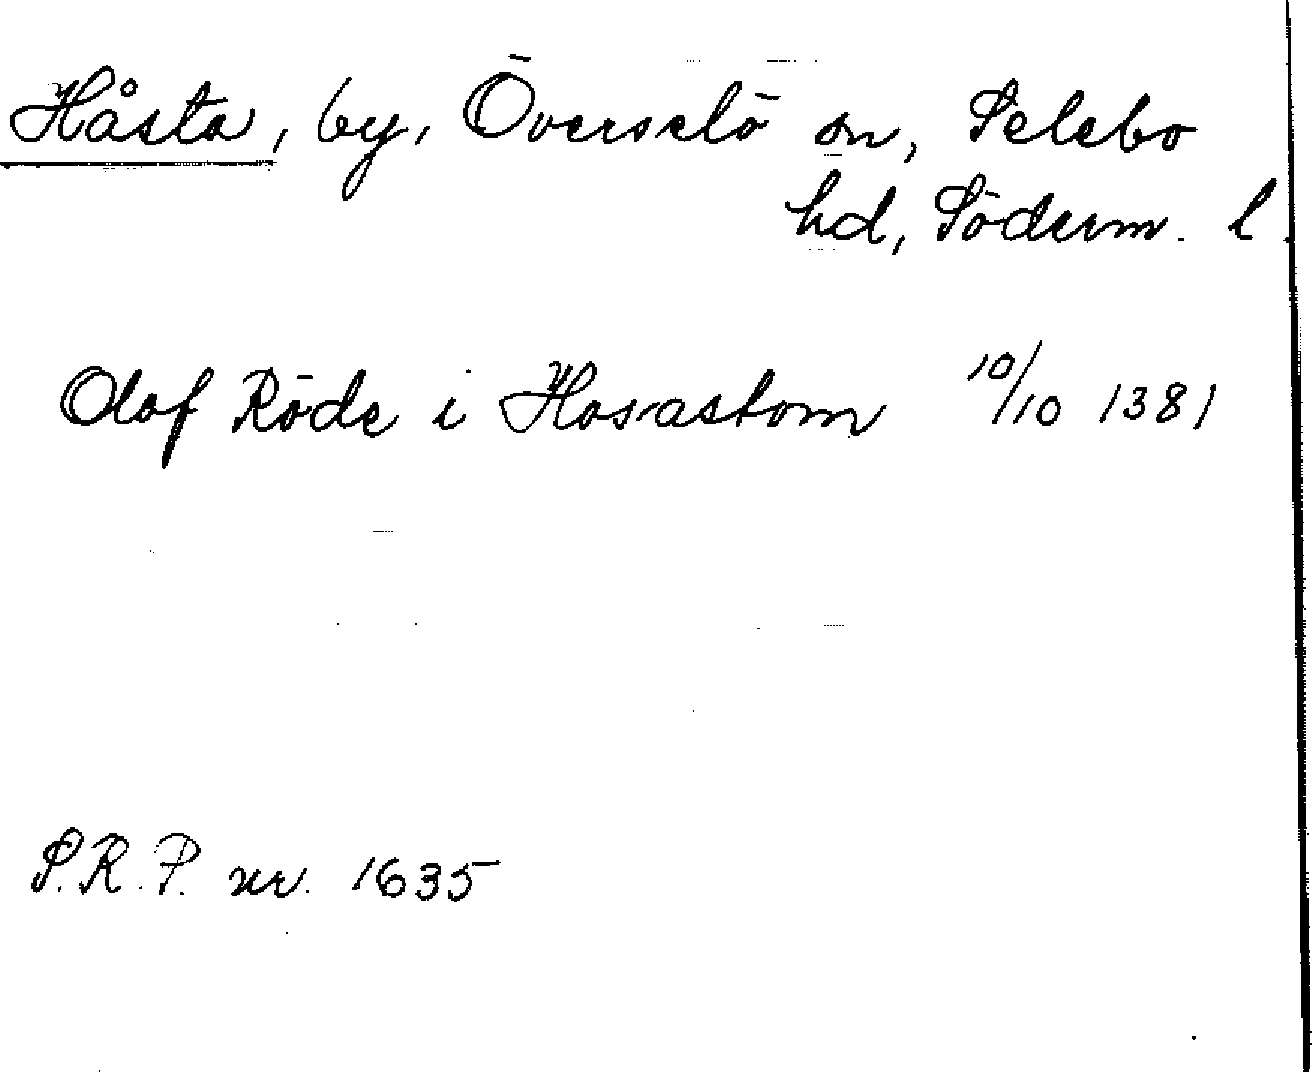 Håsta, by, Överselö sn, Selebo
hd, Söderm. l.
Olof Röde i Hosastom 10/10 1381
S.R.P. nr. 1635